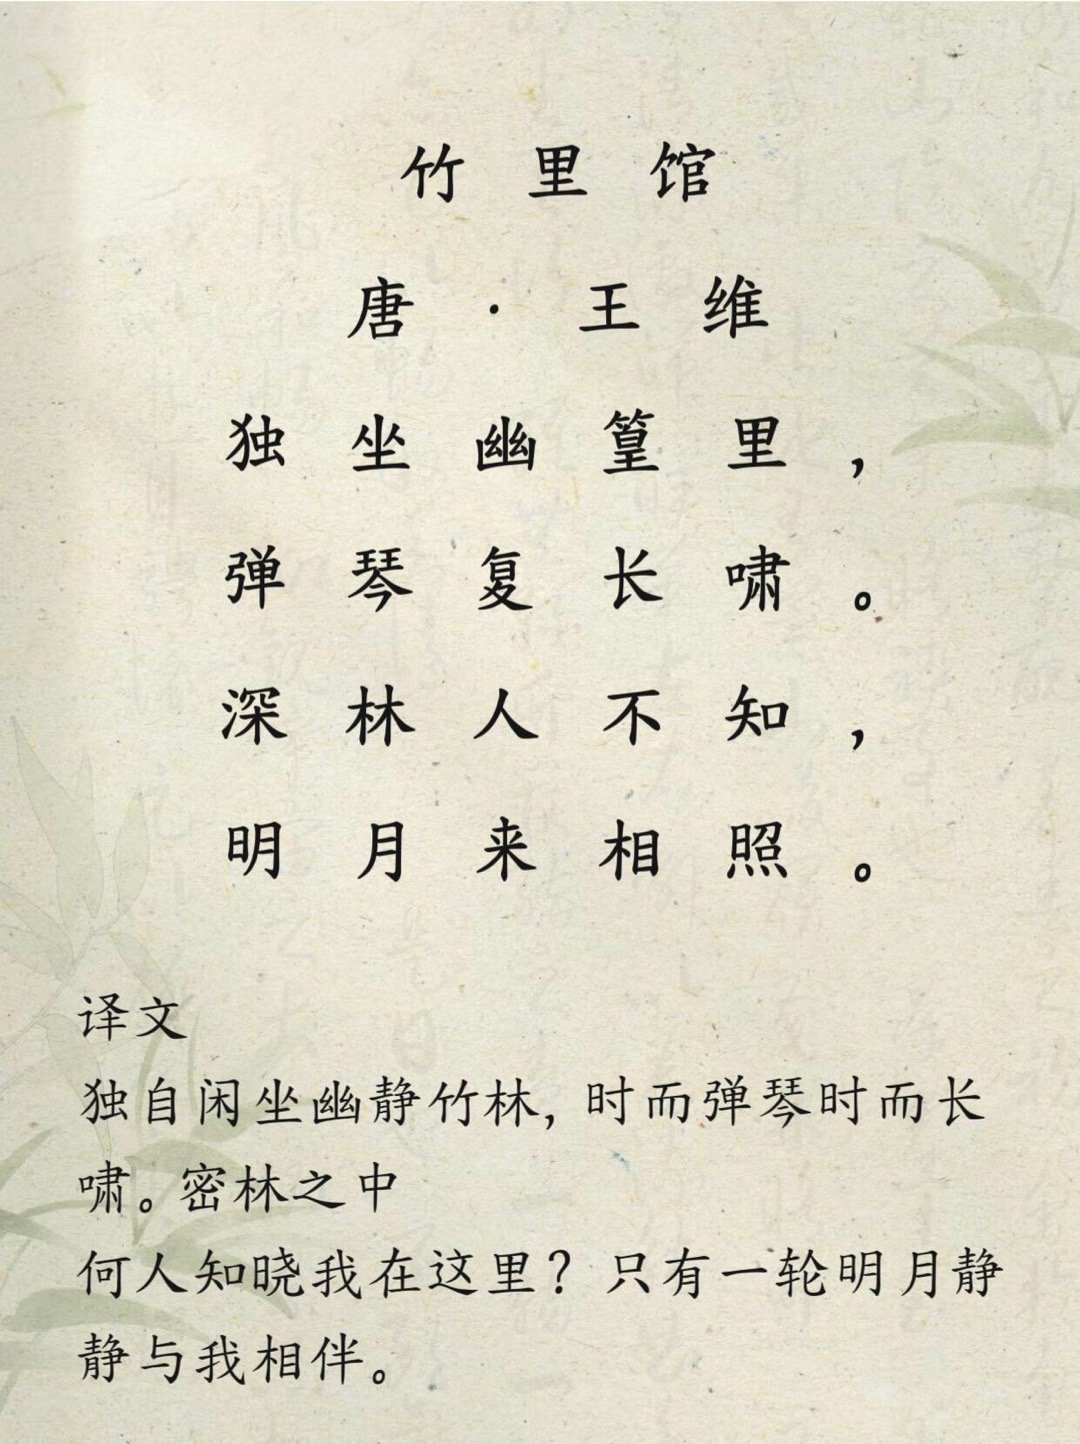 竹里馆
唐·王维
独坐幽篁里，
弹琴复长啸。
深林人不知，
明月来相照。
译文
独自闲坐幽静竹林，时而弹琴时而长
啸。密林之中
何人知晓我在这里？只有一轮明月静
静与我相伴。